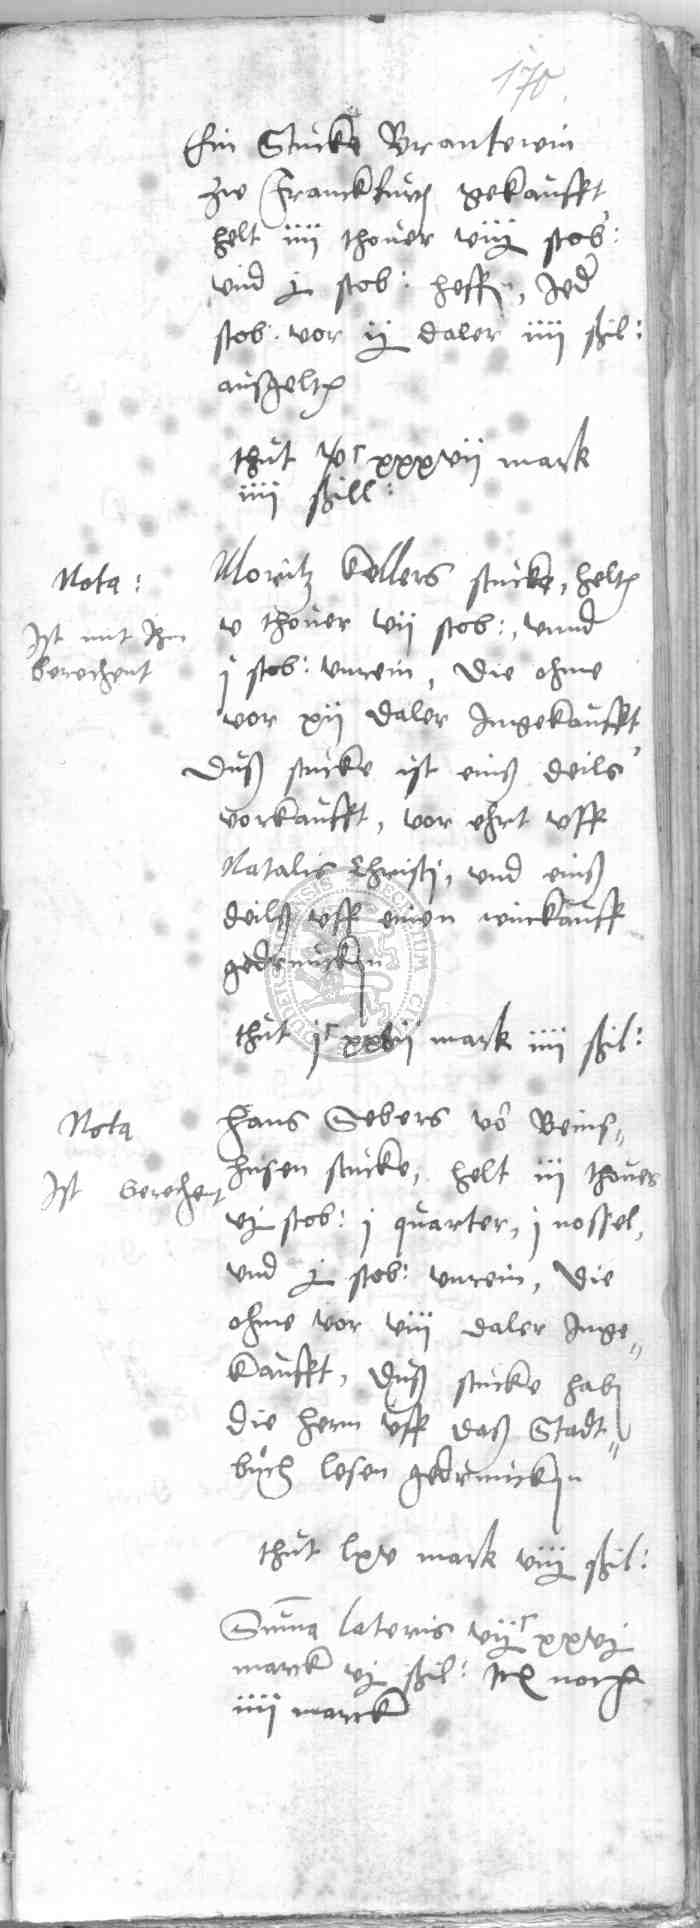 170
Ein Stucke Brantewin
zw Franckfurt gekaufft
helt iiii thover viij stob:
vnd j stob: heffen, Jeder
stob: vor ij daler iiii ßil:
außgelten
thut vc xxxvii mark
iiii ßill:
Nota:
Ist mit Ihm
berechent
Moritz Kellers stucke, helten
v thover vii stob:, vnnd
j stob: vnrein, Die ohme
vor xii daler Ingekaufft
Duß stucke ist einß deils
vorkaufft, vor ehrt vff
Natalis Christi, vnd einß
deilß vff einen winckauff
gedruncken
thut jc xxvii mark iiii ßil:
Nota
Ist berechent
Hans Sebers vo Beins„
husen stucke, helt iii thover
vj stob: j quarter, j nossel,
vnd j stob: vnrein, Die
ohme vor viii daler Inge„
kaufft, Duß stucke haben
die hern vff daß Stadt„
buch lesen gedruncken
thut lxv mark viij ßil:
Summa lateris vijc xxvj
marck vj ßil: noch
iiii marck